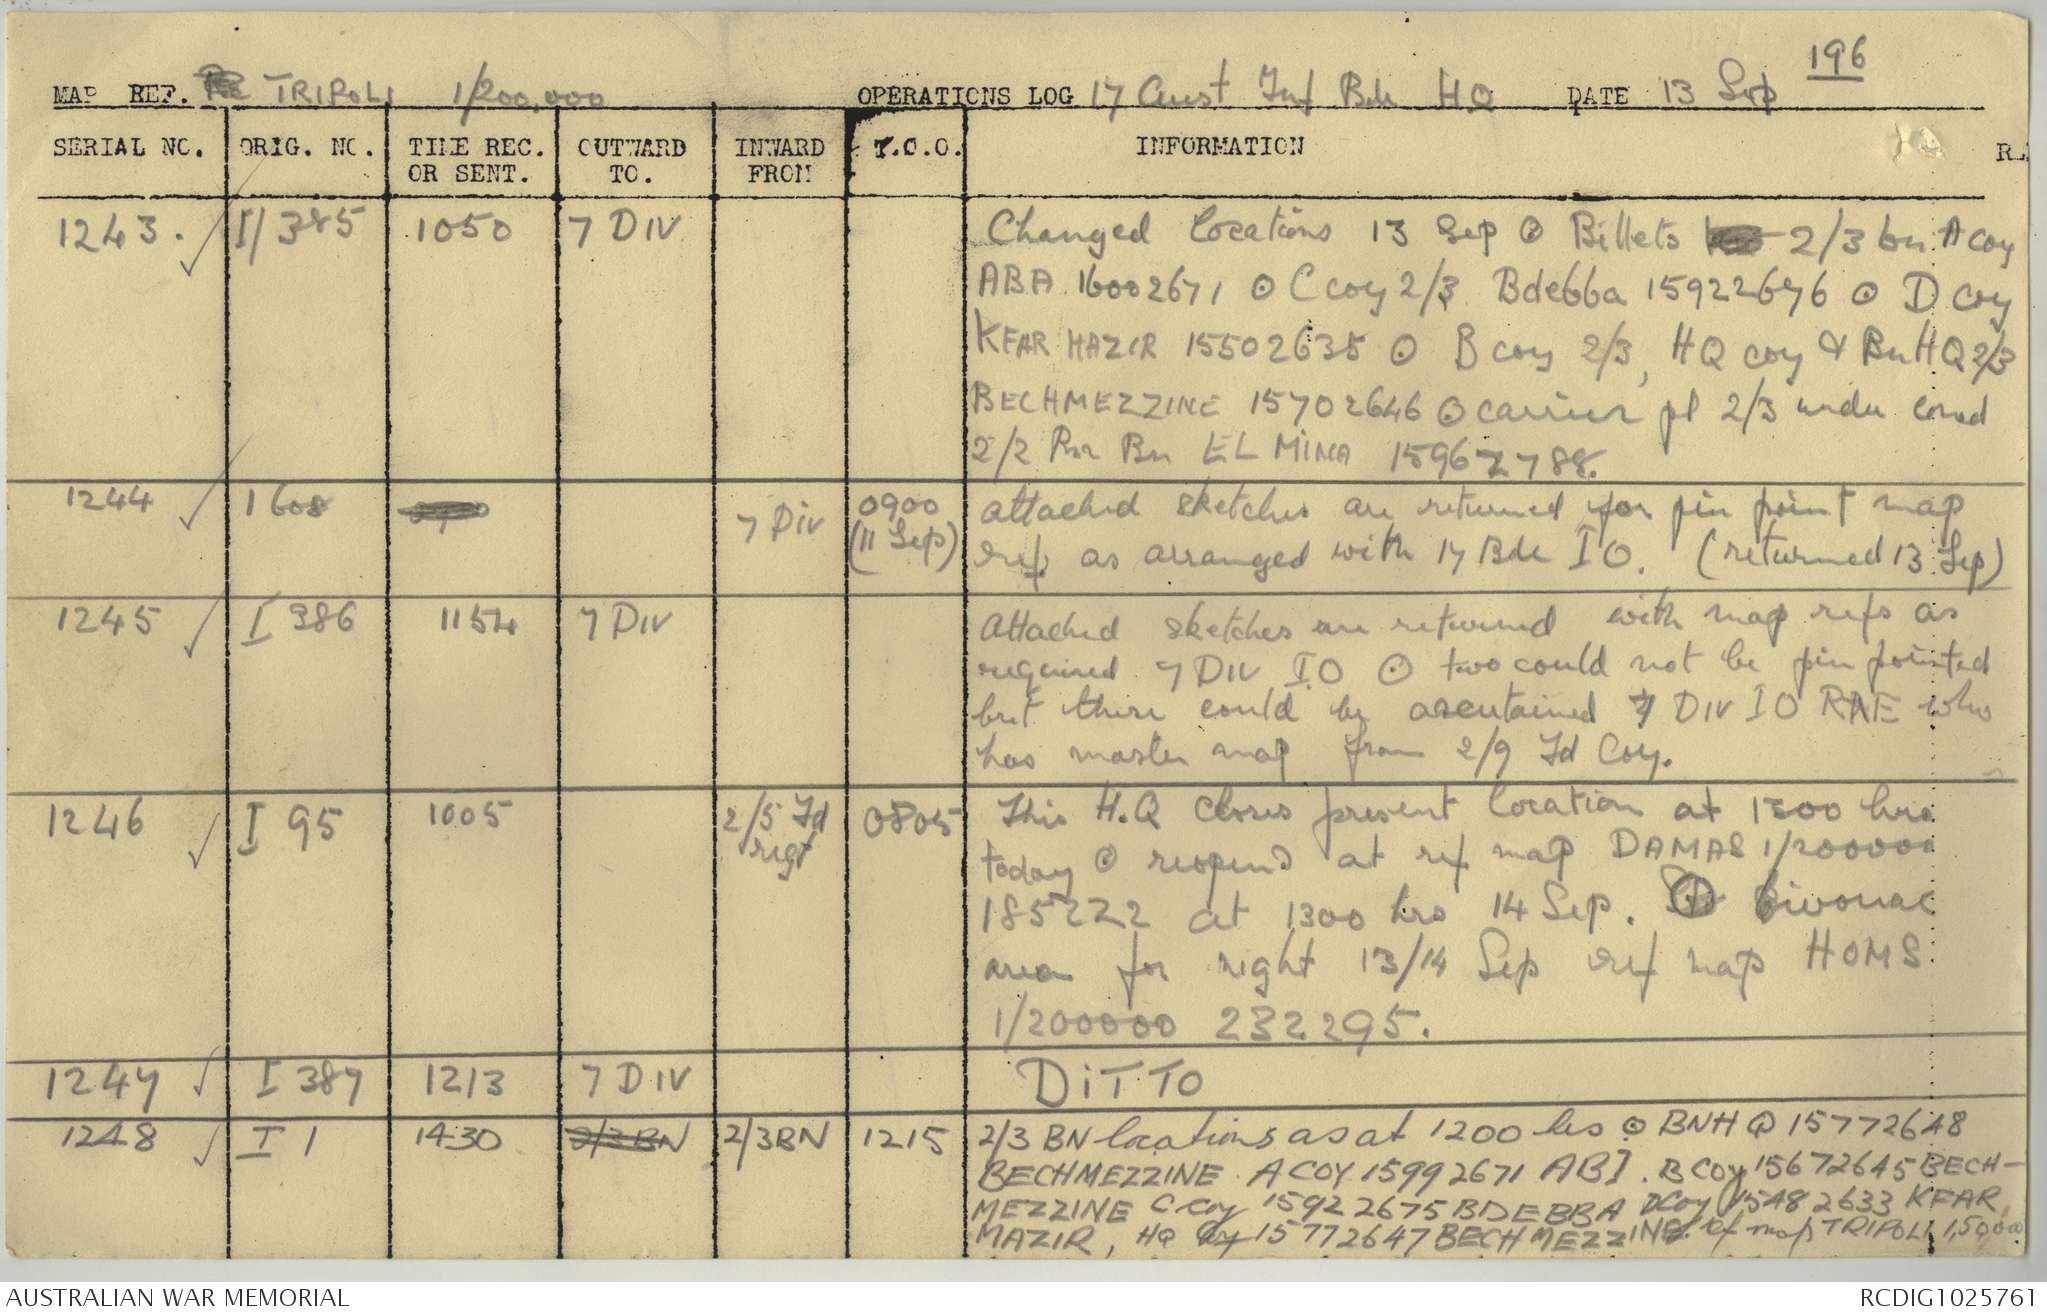 196
MAP REF. TRIPOLI 1/200,000 OPERATIONS LOG 17 Aust Inf Bde HQ DATE 13 Sep
SERIAL NO. ORIG. NO. TIME REC. OR SENT. OUTWARD TO. INWARD FROM T.O.O. INFORMATION
1243. I/385 1050 7 DIV Changed locations 13 Sep ⊙ Billets 2/3 bn A coy
ABA 16002671 ⊙ C coy 2/3 Bdebba 15922676 ⊙ D coy
KFAR HAZIR 15502635 ⊙ B coy 2/3, HQ coy & Bn HQ 2/3
BECHMEZZINE 15702646 ⊙ carrier pl 2/3 under comd
2/2 Pnr Bn EL MINA 15962788.
1244 I 608 7 Div 0900 (11 Sep) attached sketches are returned for pin point map
ref. as arranged with 17 Bde IO. (returned 13 Sep)
1245 I 386 1154 7 DIV attached sketches are returned with map refs as
required 7 DIV I.O ⊙ two could not be pin pointed
but there could be ascertained 7 DIV IO RAE who
has master map from 2/9 Fd Coy.
1246 I 95 1005 2/5 Fd regt 0805 This H.Q closes present location at 1300 hrs
today ⊙ reopens at ref map DAMAS 1/200000
185222 at 1300 hrs 14 Sep. ⊙ Bivouac
area for night 13/14 Sep ref map HOMS
1/200000 232295.
1247 I 387 1213 7 DIV DITTO
1248 I 1 1430 2/3 BN 2/3 BN 1215 2/3 BN locations as at 1200 hrs ⊙ BNHQ 15772648
BECHMEZZINE A COY 15992671 ABI. B COY 15672645 BECH-
MEZZINE C Coy 15922675 BDEBBA D Coy 15482633 KFAR
MAZIR, HQ Coy 15772647 BECHMEZZINE. ref map TRIPOLI 1,50000
AUSTRALIAN WAR MEMORIAL RCDIG1025761